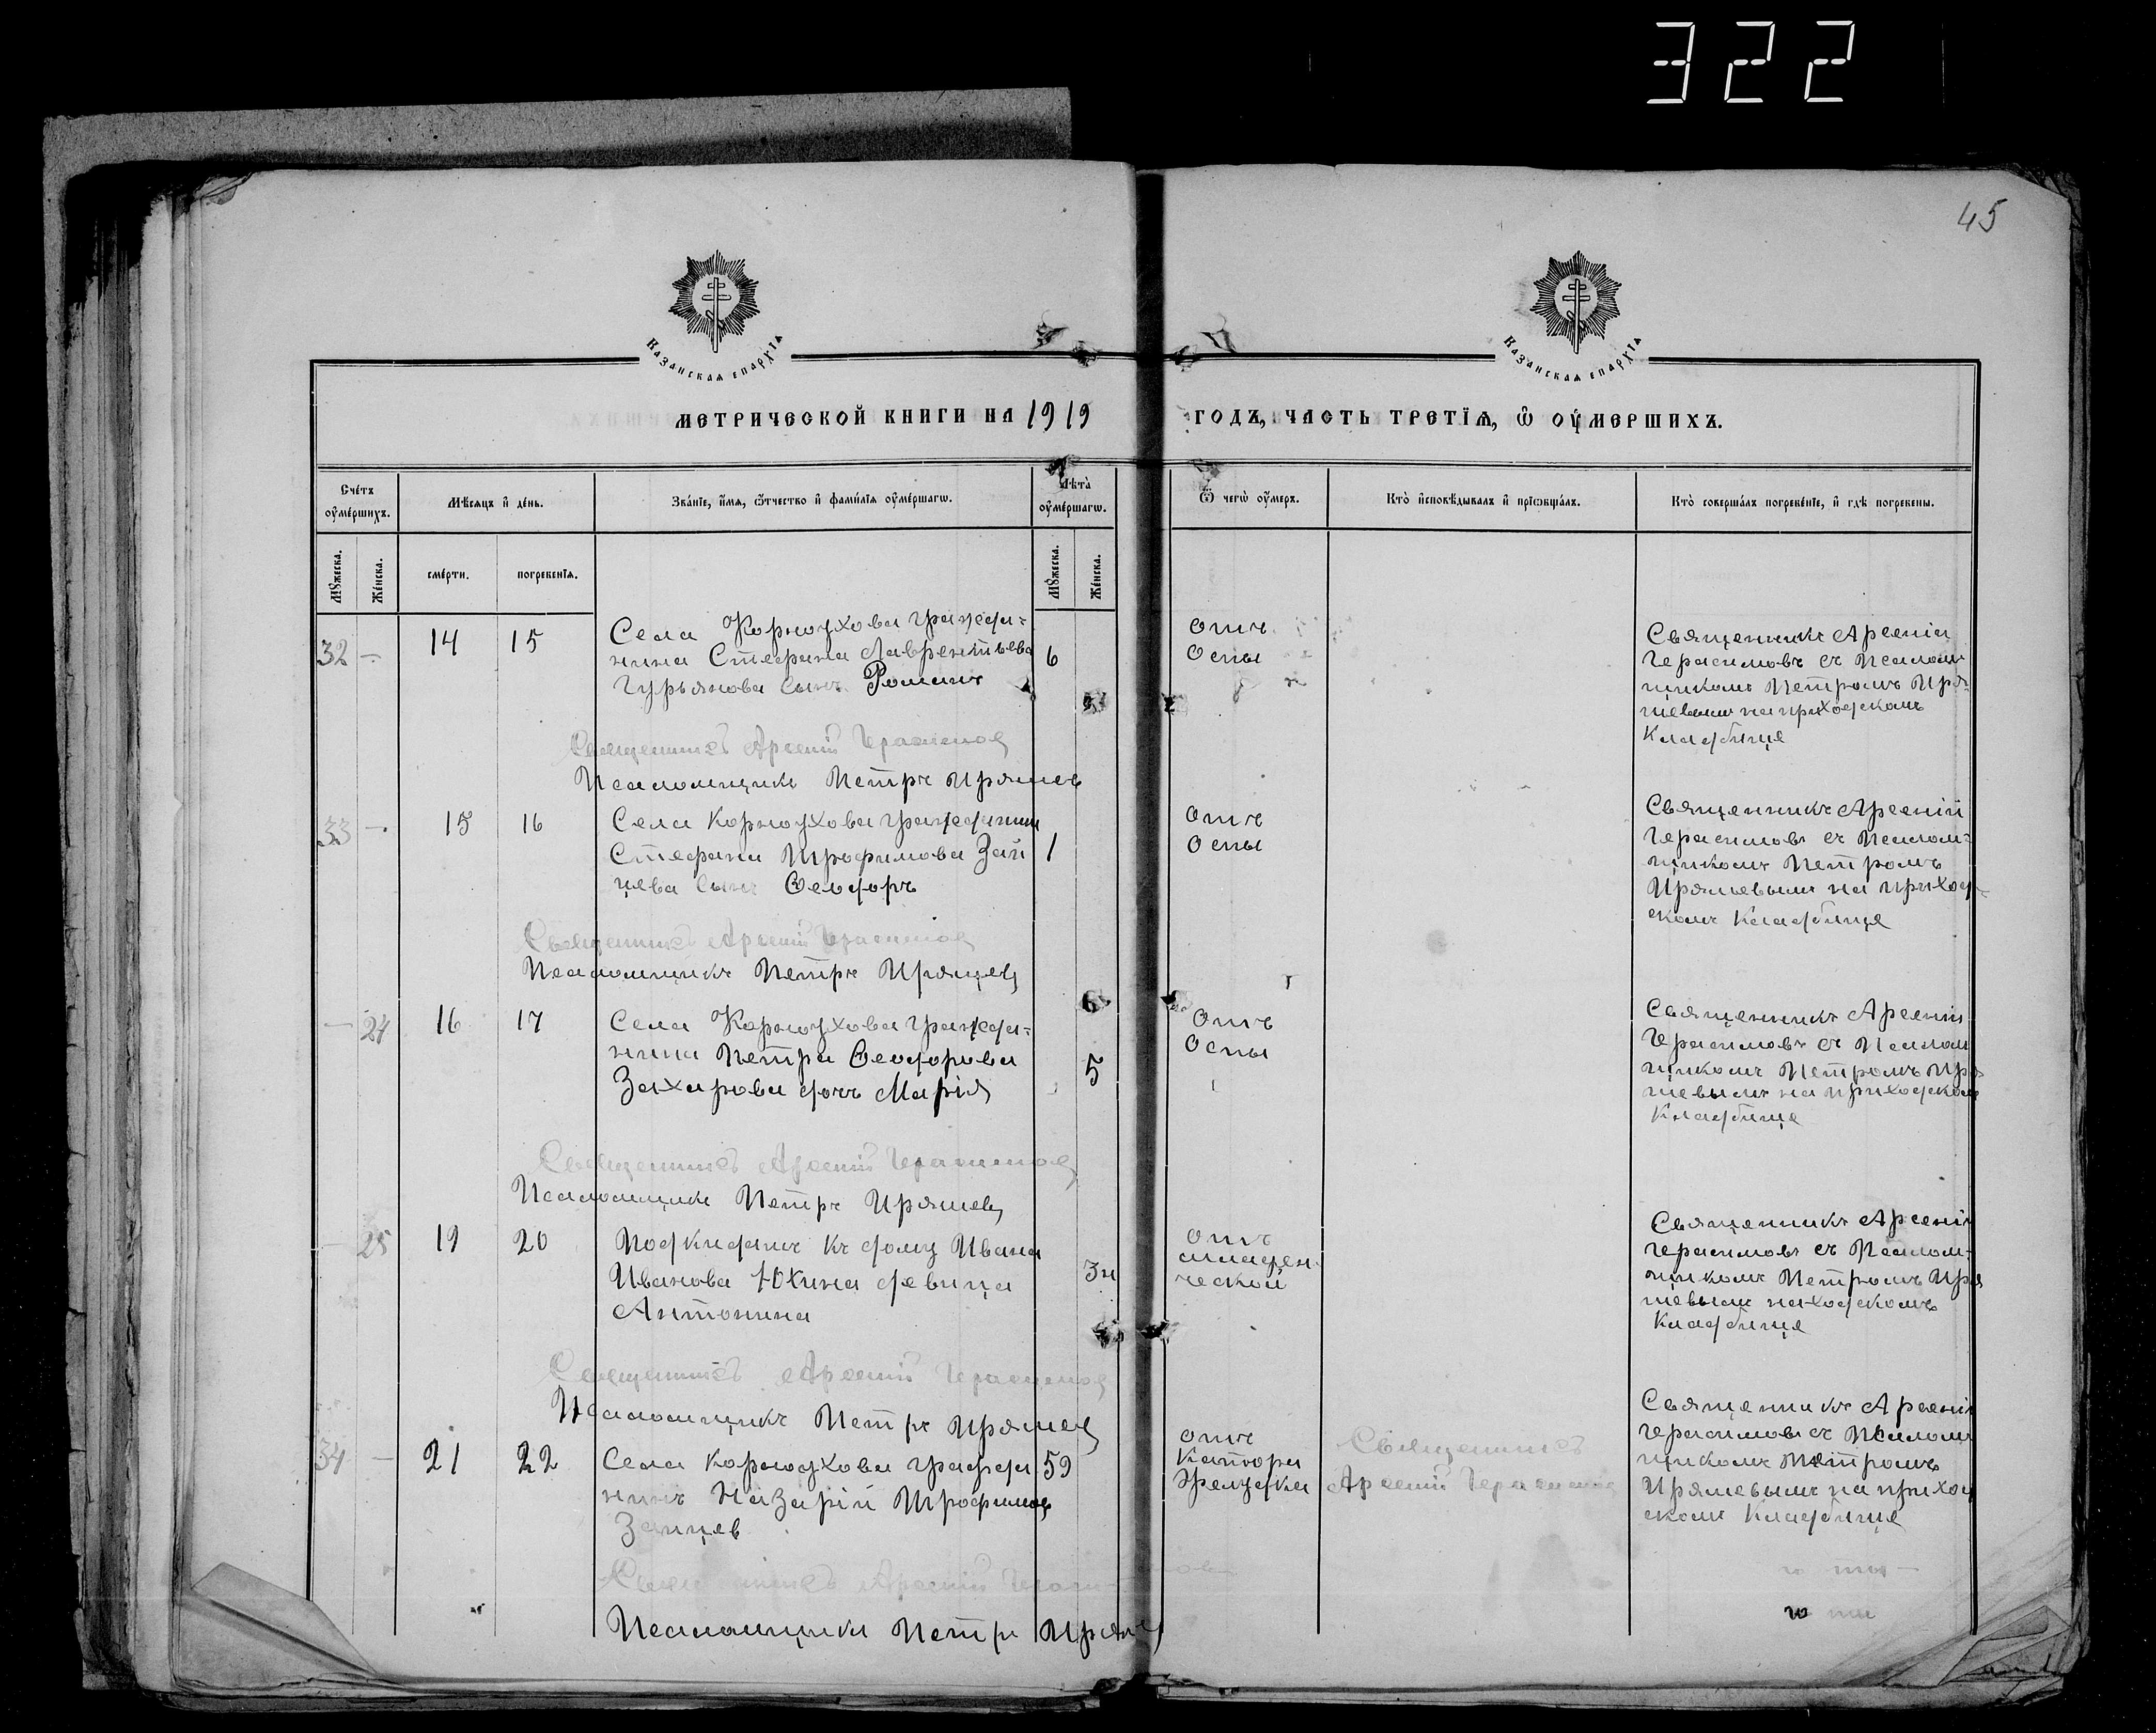 322
45
Казанскаѧ епархїѧ
Казанскаѧ епархїѧ
метрической книги на 1919 годъ, часть третїѧ, ѿ оумершихъ.
Счетъ оумершихъ.
Мѣсяцъ и день.
Званїе, имя, ѿтчество и фамилїѧ оумершагѡ.
Лѣта оумершагѡ.
Ѿ чегѡ оумеръ.
Кто исповѣдывалъ и прїѡбщалъ.
Кто совершалъ погребенїе, и гдѣ погребены.
Мужеска.
Женска.
смерти.
погребенїѧ.
Мужеска.
Женска.
32 — 14 15
Села Корноухова гражда-
нина Стефана Лаврентьева
Гурьянова сынъ Романъ
6
отъ
Оспы
Священникъ Арсеній
Герасимовъ съ Псалом
щикомъ Петромъ Иря-
шевымъ на приходскомъ
Кладбище
Священникъ Арсеній Герасимов
Псаломщикъ Петръ Иряшев
33 — 15 16
Села Корноухова гражданина
Стефана Трофимова Зай
цева сынъ Феодоръ
1
отъ
Оспы
Священникъ Арсеній
Герасимовъ съ Псалом-
щикомъ Петромъ
Иряшевымъ на приход-
скомъ Кладбище
Священникъ Арсеній Герасимов
Псаломщикъ Петръ Иряшев
— 24 16 17
Села Корноухова гражда-
нина Петра Феодорова
Захарова дочь Марія
5
Отъ
Оспы
Священникъ Арсеній
Герасимовъ съ Псалом
щикомъ Петромъ Иря
шевымъ на приходском
Кладбище
Священникъ Арсеній Герасимов
Псаломщикъ Петръ Иряшев
— 25 19 20
Подкидышъ къ дому Ивана
Иванова Юкина девица
Антонина
3н
отъ
младен
ческой
Священникъ Арсеній
Герасимовъ съ Псалом-
щикомъ Петромъ Иря
шевым находскомъ
Кладбище
Священникъ Арсеній Герасимов
Псаломщикъ Петръ Иряшев
34 — 21 22
Села Корноухова гражда
нинъ Назарій Трофимов
Зайцев
59
отъ
Катора
Желудка
Священникъ
Арсеній Герасимов
Священникъ Арсеній
Герасимовъ съ Псалом
щикомъ Петромъ
Иряшевымъ на приход
скомъ Кладбище
Священникъ Арсеній Герасимов
Псаломщикъ Петръ Иряшев